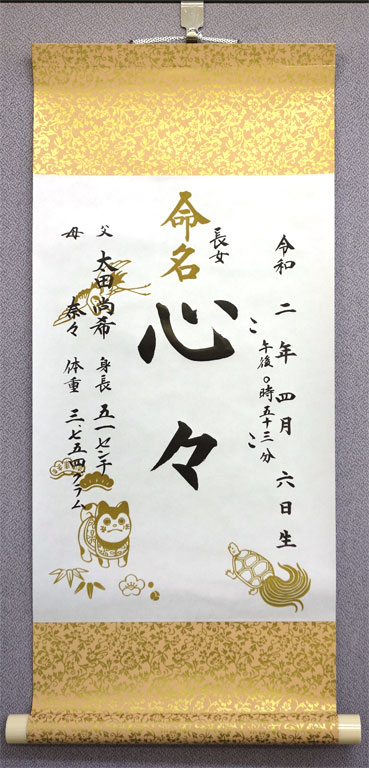 令和二年四月六日生
午後〇時五十三分
長女
命名
心々
ここ
父 太田尚希 身長 五一センチ
母 奈々 体重 三、七五四グラム